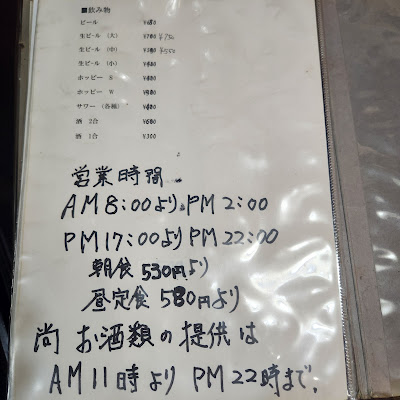 ■飲み物
ビール ¥680
生ビール (大) ¥700 ¥750
生ビール (中) ¥550
生ビール (小)
ホッピー B
ホッピー W
サワー (各種)
酒 2合 ¥600
酒 1合 ¥300
営業時間
AM8:00よりPM2:00
PM17:00よりPM22:00
朝食 530円より
昼定食 580円より
尚 お酒類の提供は
AM11時よりPM22時まで。